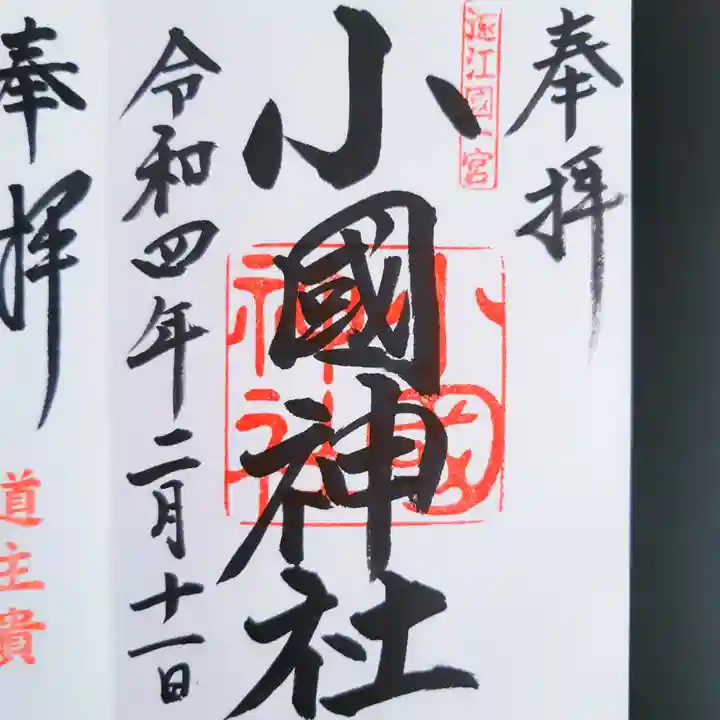 奉拝
遠江國一宮
小國神社
小國神社
令和四年二月十一日
奉拝
道主貴